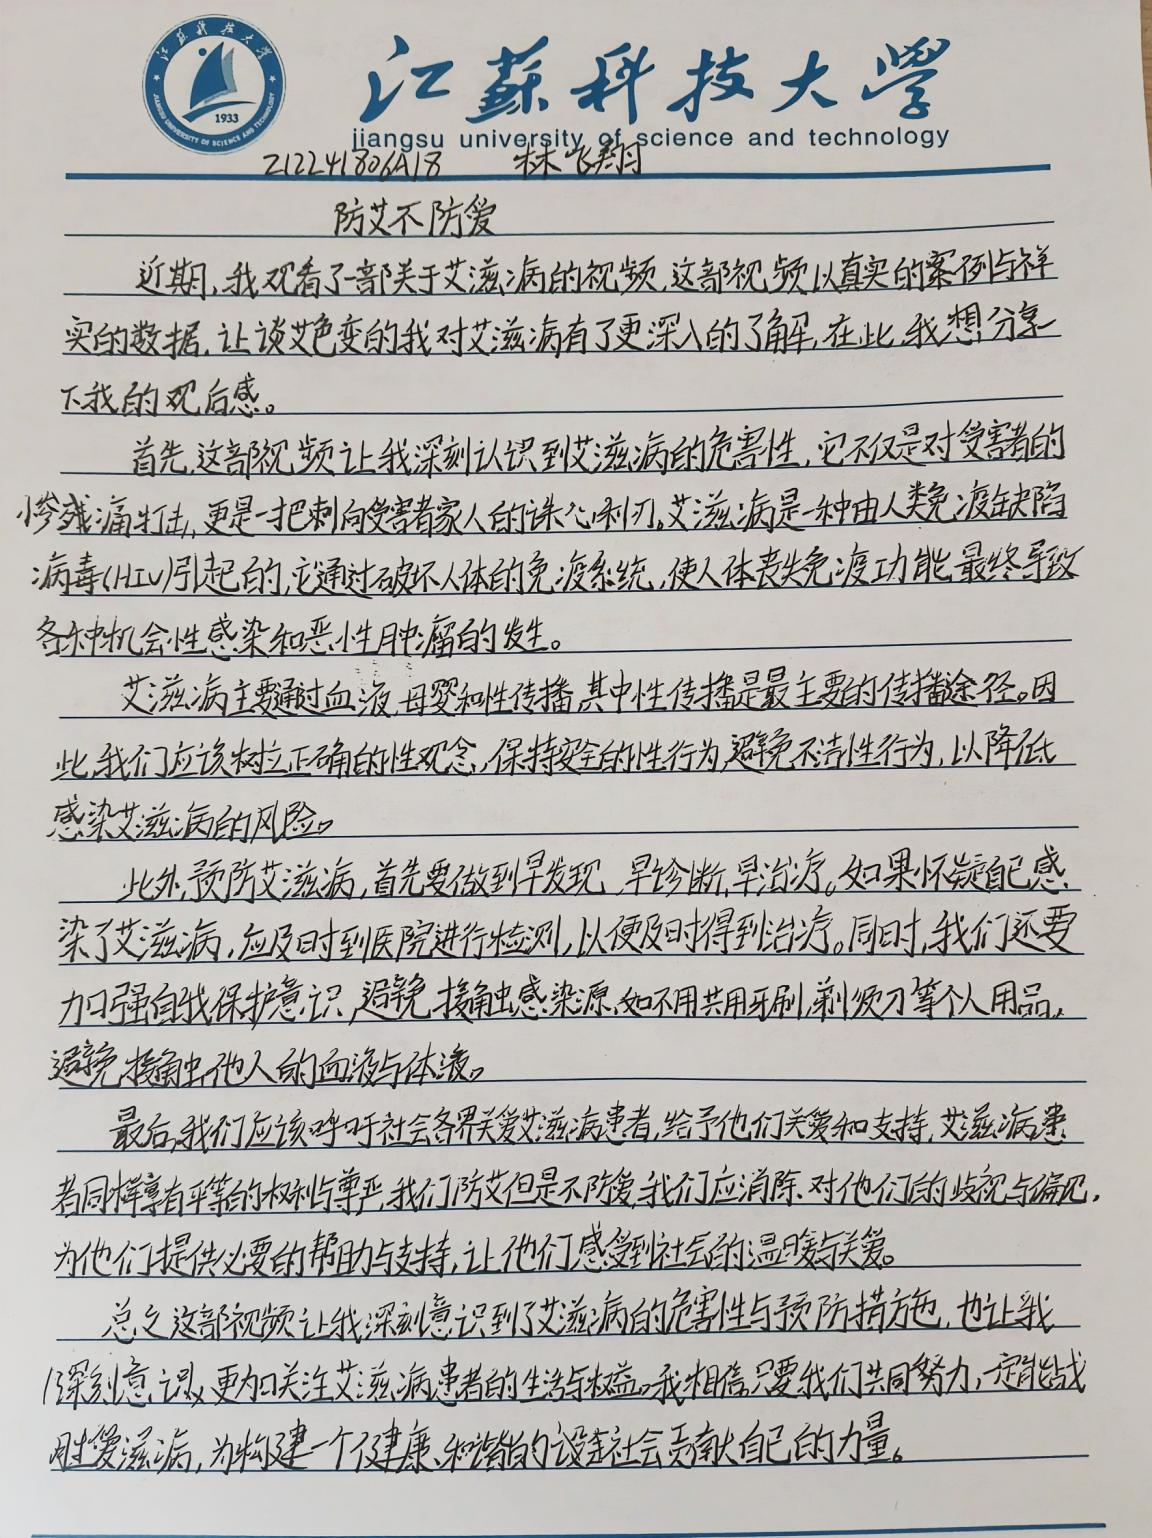 江苏科技大学
JIANGSU UNIVERSITY OF SCIENCE AND TECHNOLOGY
1933
江蘇科技大學
jiangsu university of science and technology
212241806A18 林飞翔
防艾不防爱
近期,我观看了一部关于艾滋病的视频,这部视频以真实的案例与详
实的数据,让谈艾色变的我对艾滋病有了更深入的了解,在此,我想分享一
下我的观后感。
首先,这部视频让我深刻认识到艾滋病的危害性,它不仅是对受害者的
惨残痛打击,更是一把刺向受害者家人的诛心利刃。艾滋病是一种由人类免疫缺陷
病毒(HIV)引起的,它通过破坏人体的免疫系统,使人体丧失免疫功能,最终导致
各种机会性感染和恶性肿瘤的发生。
艾滋病主要通过血液,母婴和性传播,其中性传播是最主要的传播途径。因
此,我们应该树立正确的性观念,保持安全的性行为,避免不洁性行为,以降低
感染艾滋病的风险。
此外,预防艾滋病,首先要做到早发现 早诊断,早治疗。如果怀疑自己感
染了艾滋病,应及时到医院进行检测,以便及时得到治疗。同时,我们还要
加强自我保护意识,避免接触感染源,如不用共用牙刷,剃须刀等个人用品,
避免接触他人的血液与体液。
最后,我们应该呼吁社会各界关爱艾滋病患者,给予他们关爱和支持,艾滋病患
者同样享有平等的权利与尊严,我们防艾但是不防爱,我们应消除对他们的歧视与偏见,
为他们提供必要的帮助与支持,让他们感受到社会的温暖与关爱。
总之这部视频让我深刻意识到了艾滋病的危害性与预防措施,也让我
深刻意识更加关注艾滋病患者的生活与权益。我相信,只要我们共同努力,一定能战
胜爱滋病,为构建一个健康、和谐的社会贡献自己的力量。